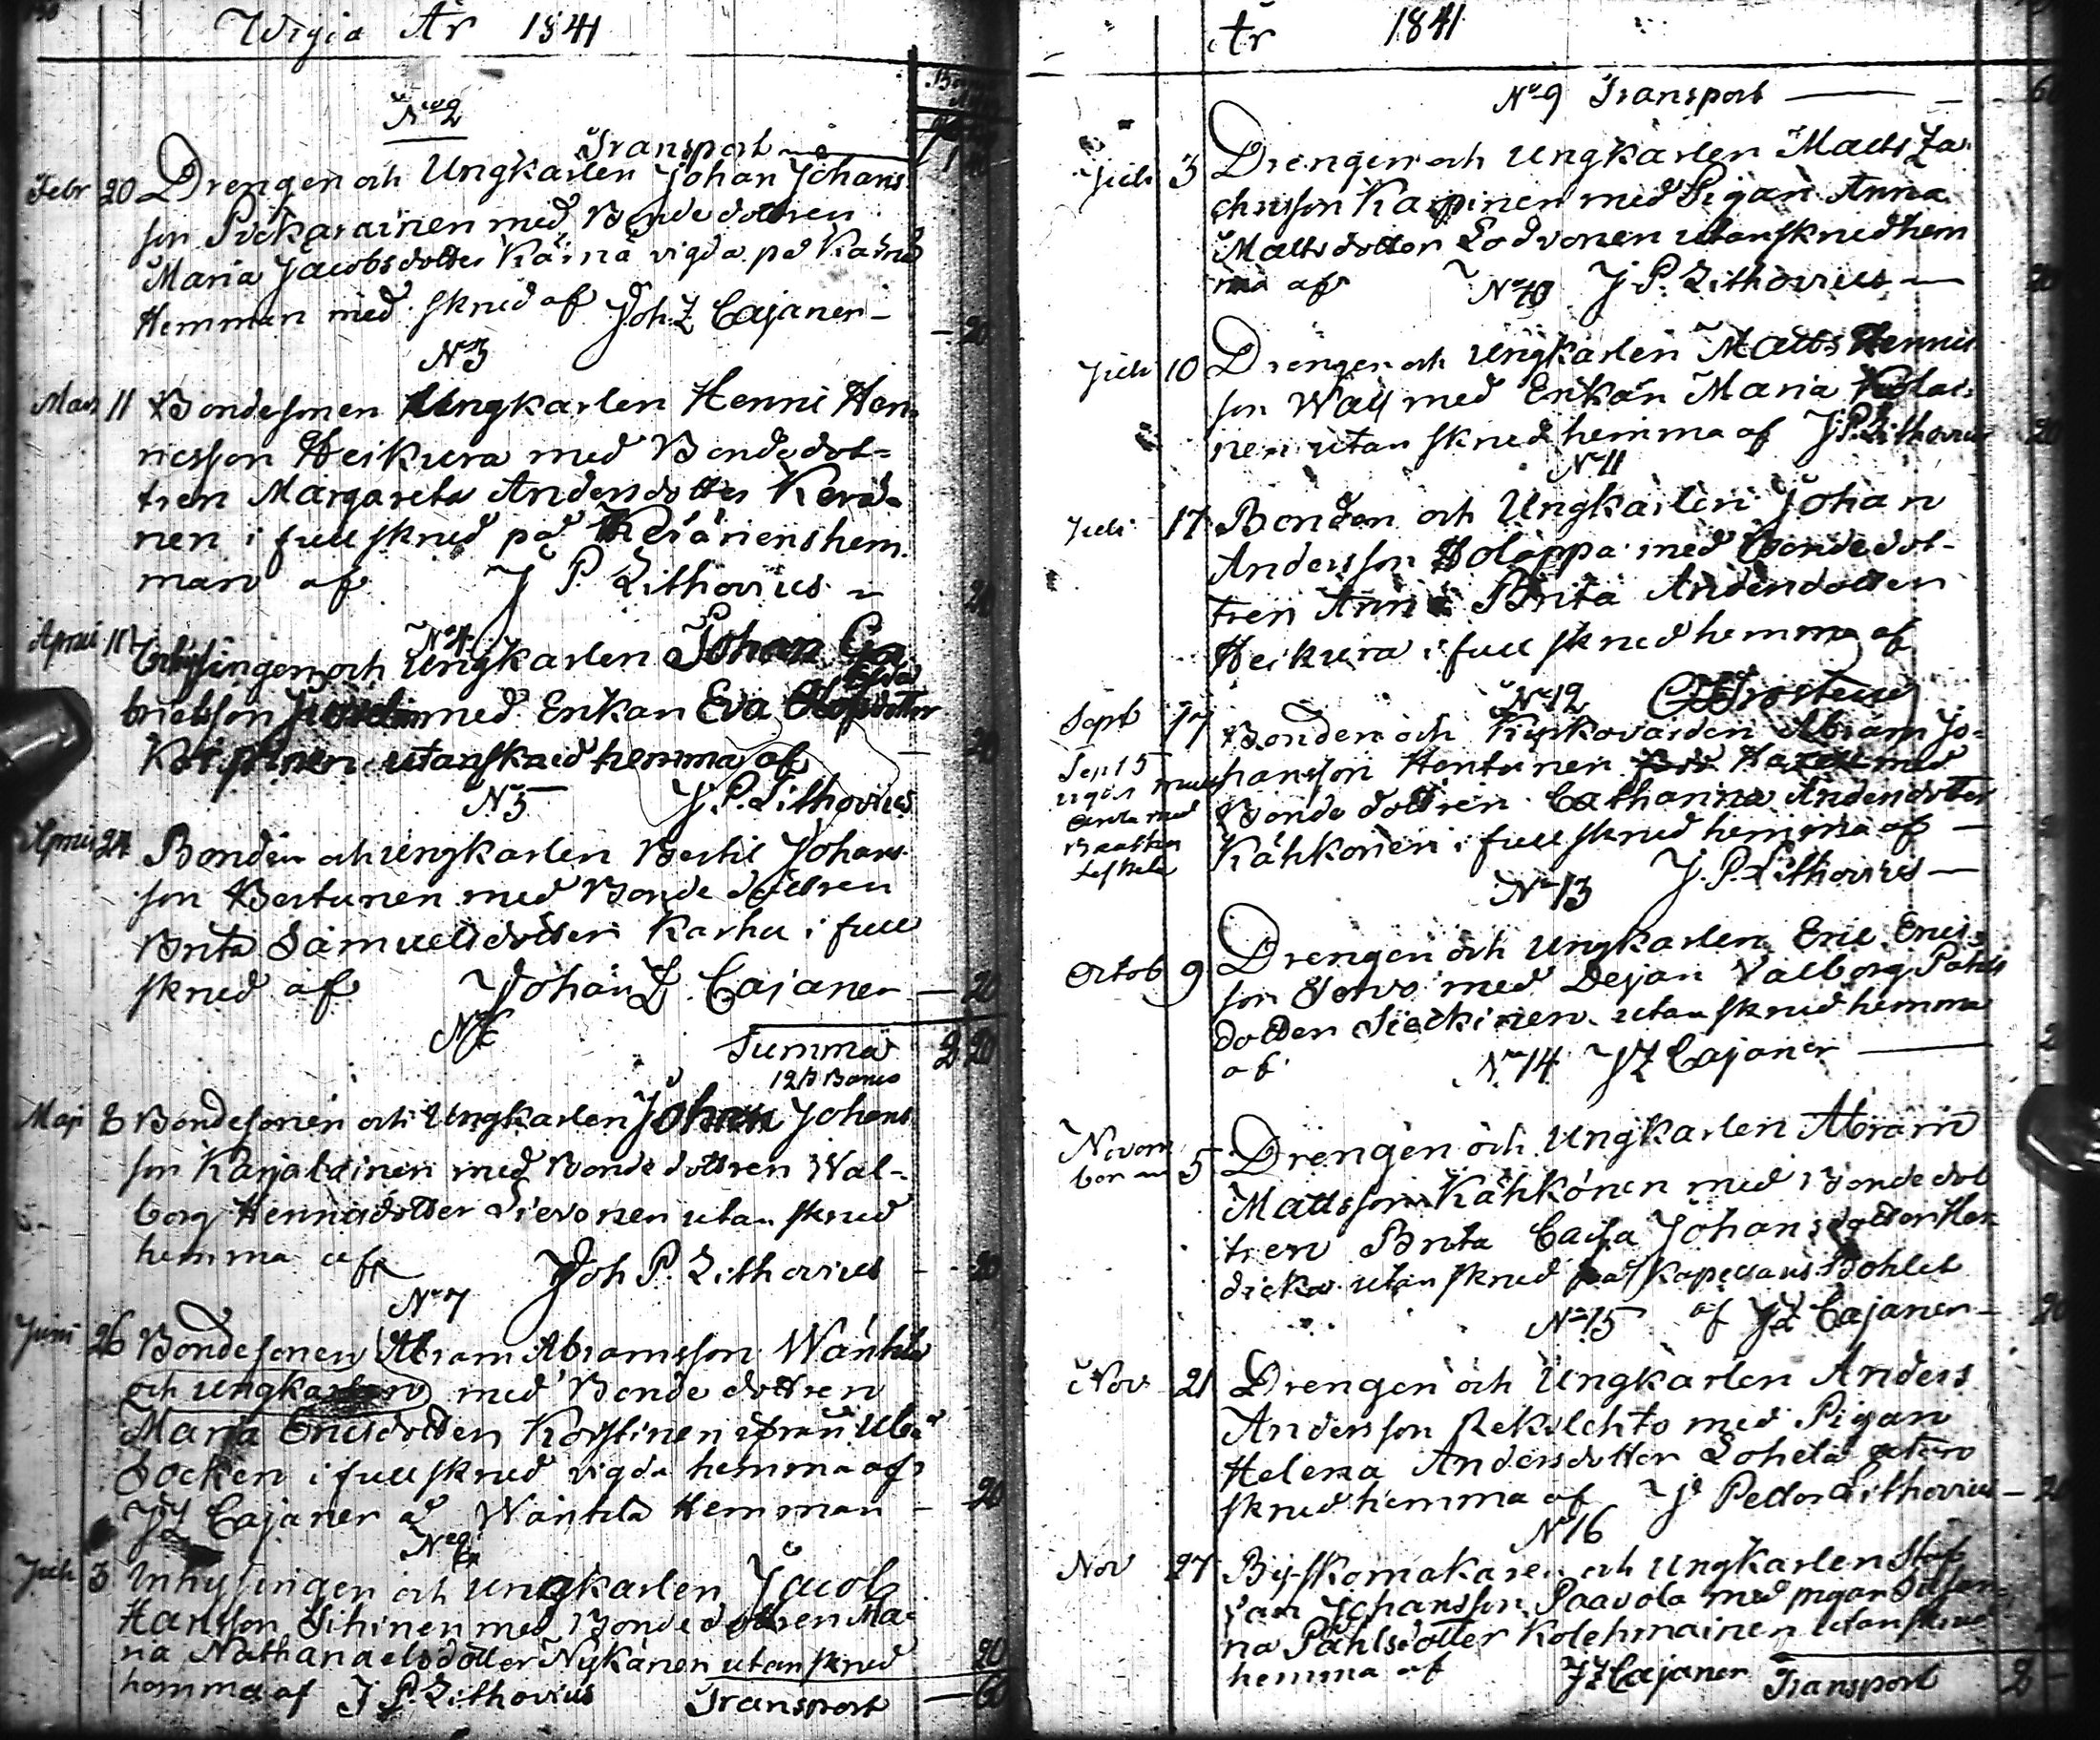 Wigia År 1841
No 2
Transport
Febr 20 Drengen och Ungkarlen Johan Johans
son Pickarainen med Bondedottren
Maria Jacobsdotter Kärnä vigda på Kärnä
Hemman med skrud af Joh Z Cajaner - 20
No 3
Mars 11 Bondesonen Ungkarlen Henric Hen
ricsson Heikura med Bondedot=
tren Margareta Andersdotter Kerä-
nen i full skrud på Keränens hem
man af J P Lithovius - 20
No 4
April 11 Inhysingen och Ungkarlen Johan Ga
brielsson med Enkan Eva Olofsdotter
utan skrud hemma af 20
No 5 J. P. Lithovius
April 24 Bonden och Ungkarlen Bertil Johans
son Bertunen med Bonde dottren
Brita Samuelsdotter Karhu i full
skrud af Johan Z. Cajaner - 20
No 6
Summa 2 20
Maj 8 Bondesonen och Ungkarlen Johan Johans
son Karjalainen med Bonde dottren Wal-
borg Henricsdotter Sievonen utan skrud
hemma af Joh P. Lithovius - 20
No 7
Juni 26 Bondesonen Abram Abramsson Wänttilä
och Ungkarlen med Bonde dottren
Maria Ericsdotter ifrån Uleå
Socken i full skrud vigda hemma af
JZ Cajaner å Wänttilä Hemman - 20
No 8
Juli 3 Inhysingen och Ungkarlen Jacob
Hansson Sihinen med Bondedottren Ma-
ria Nathanaelsdotter Nykänen utan skrud 20
hemma af J P. Lithovius Transport - 60
År 1841
No 9 Transport - 60
Juli 3 Drengen och Ungkarlen Matts Za
chrisson Karpinen med Pigan Anna
Mattsdotter Lodvonen utan skrud hem
ma af No 10 J P. Lithovius - 20
Juli 10 Drengen och Ungkarlen Matts Henrics
son Wall med Enkan Maria Kolai-
nen utan skrud hemma af J. P. Lithovius 20
No 11
Juli 17 Bonden och Ungkarlen Johan
Andersson Holappa med Bondedot-
tren Anna Brita Andersdotter
Heikura i full skrud hemma af
No 12
Sept 17 Bonden och Kyrkovärden Abram Jo-
hansson Hentunen med
Bonde dottren Catharina Andersdotter
Kähkönen i full skrud hemma af -
No 13 J. P. Lithovius -
Octob 9 Drengen och Ungkarlen Eric Erics
son Torvo med Dejan Valborg Påhls
dotter Sieckinen utan skrud hemma
af No 14 JZ Cajaner - 2
Novem
ber 5 Drengen och Ungkarlen Abram
Mattsson Kähkönen med Bondedot
tren Brita Caisa Johansdotter Hen
dicka utan skrud på Kapellans Bohlet
No 15 af JZ Cajaner - 20
Nov 21 Drengen och Ungkarlen Anders
Andersson Rekilehto med Pigan
Helena Andersdotter Lohela utan
skrud hemma af J Petter Lithovius - 20
No 16
Nov 27 By-skomakaren och Ungkarlen Staf
fan Johansson Paavola med pigan Susan
na Påhlsdotter Kolehmainen utan skrud
hemma af JZ Cajaner Transport 2 -